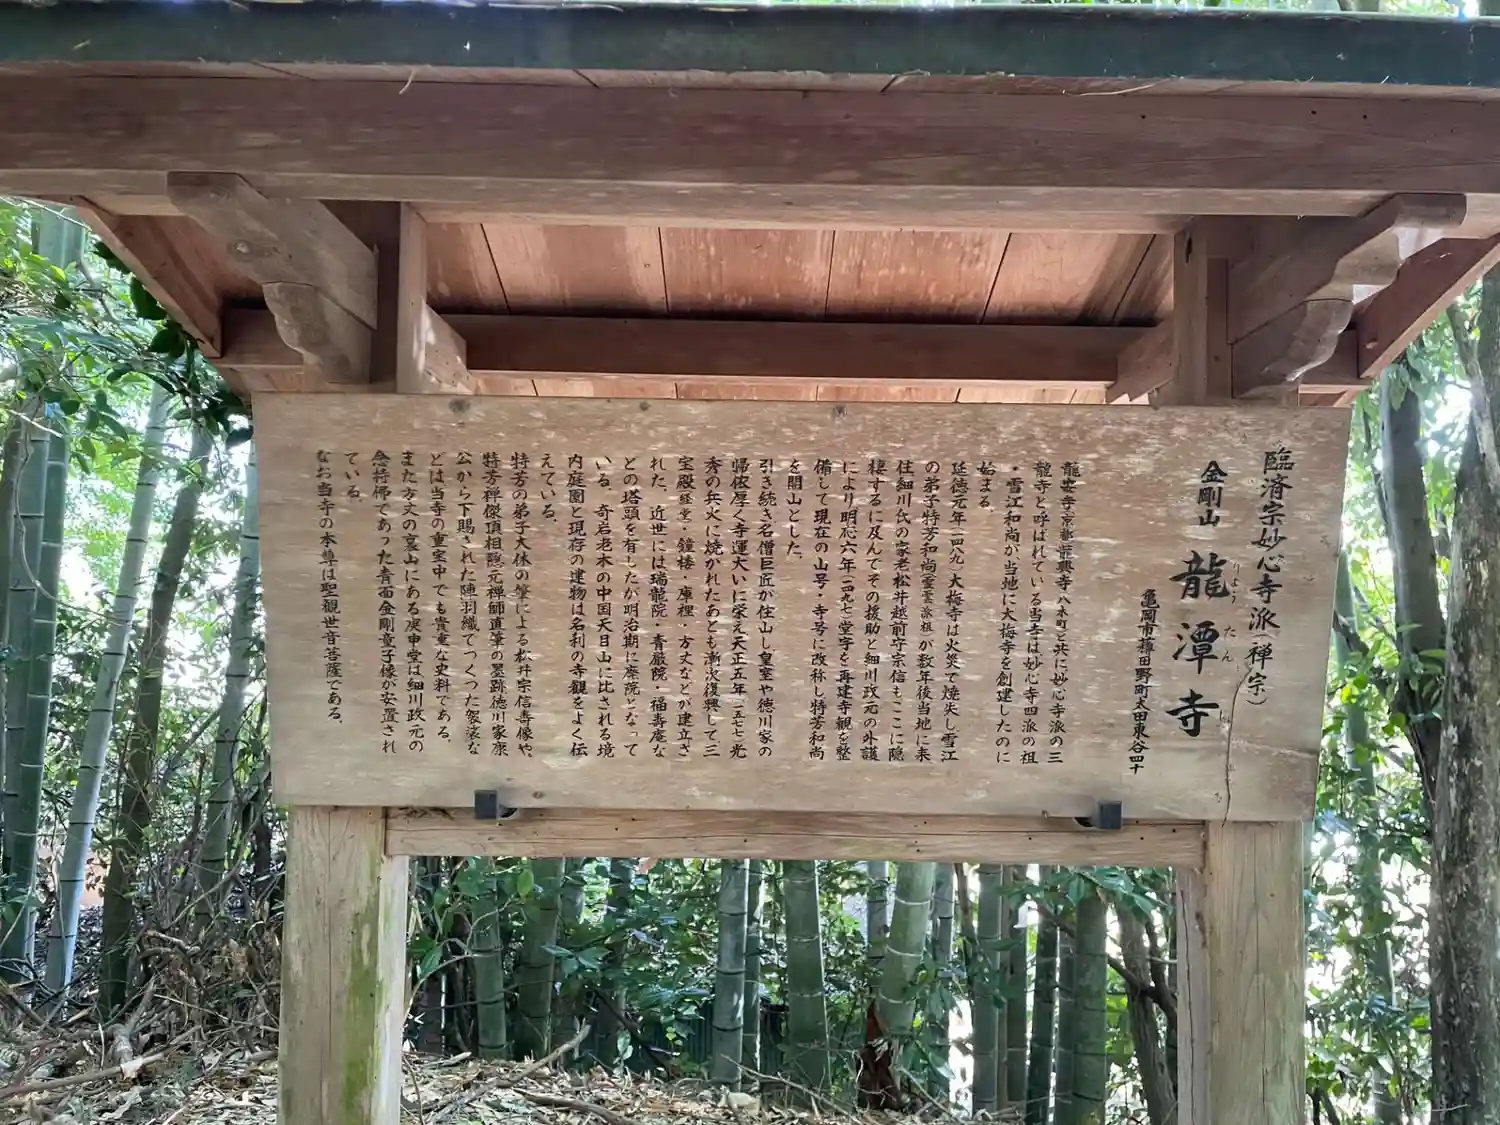 臨済宗妙心寺派(禅宗)
金剛山 龍潭寺
りょう たん じ
亀岡市薭田野町太田東谷四十
龍安寺(京都)龍興寺(八木町)と共に妙心寺派の三
龍寺と呼ばれている当寺は妙心寺四派の祖
・雪江和尚が当地に大梅寺を創建したのに
始まる。
延徳元年(一四八九)大梅寺は火災で焼失し雪江
の弟子特芳和尚(霊雲派祖)が数年後当地に来
住細川氏の家老松井越前守宗信もここに隠
棲するに及んでその援助と細川政元の外護
により明応六年(一四九七)堂宇を再建寺観を整
備して現在の山号・寺号に改称し特芳和尚
を開山とした。
引き続き名僧巨匠が住山し皇室や徳川家の
帰依厚く寺運大いに栄え天正五年(一五七七)光
秀の兵火に焼かれたあとも漸次復興して三
宝殿・経堂・鐘楼・庫裡・方丈などが建立さ
れた。近世には瑞龍院・青厳院・福寿庵な
どの塔頭を有したが明治期に廃院となって
いる。奇岩老木の中国天目山に比される境
内庭園と現存の建物は名刹の寺観をよく伝
えている。
特芳の弟子大休の筆による松井宗信寿像や、
特芳禅傑頂相隠元禅師直筆の墨跡徳川家康
公から下賜された陣羽織でつくった袈裟な
どは当寺の重宝中でも貴重な史料である。
また方丈の裏山にある庚申堂は細川政元の
念持佛であった青面金剛童子像が安置され
ている。
なお当寺の本尊は聖観世音菩薩である。